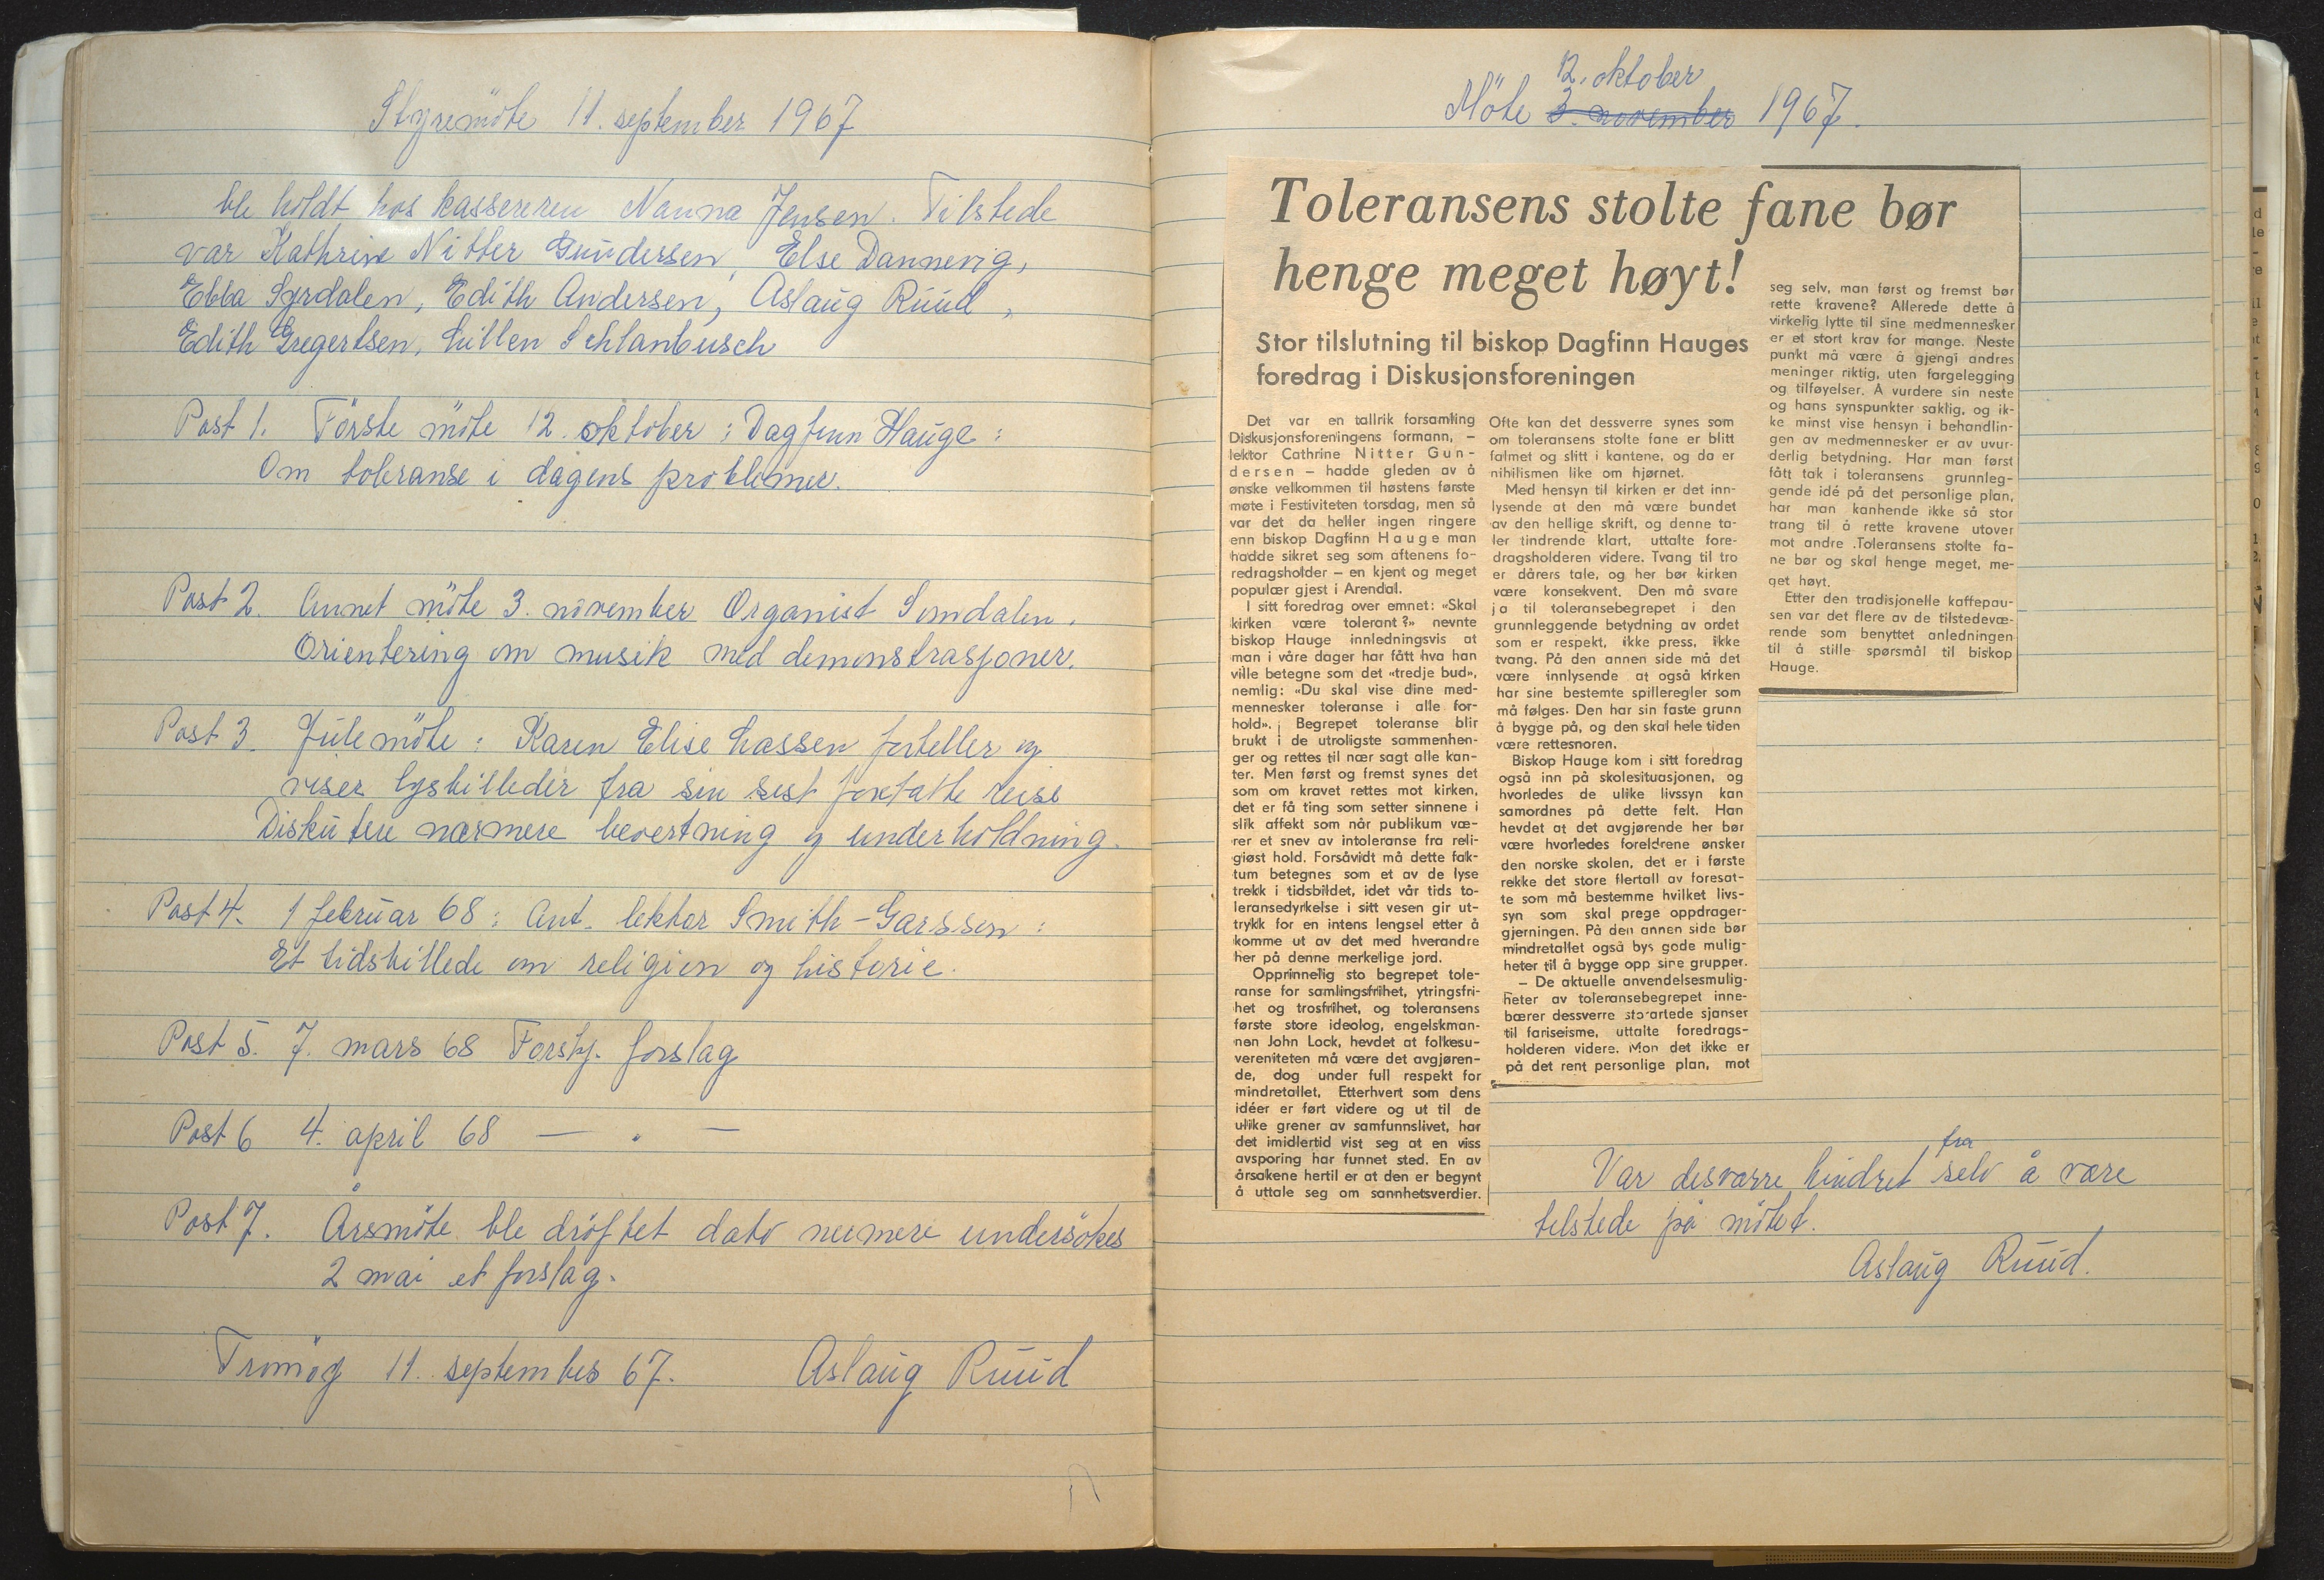 Styremöte 11. september 1967
ble holdt hos kassereren Nanna Jensen. Tilstede
var Kathrine Nitter Gundersen, Else Dannevig,
Ebba Syrdalen, Edith Andersen, Aslaug Ruud,
Edith Gregertsen, Lillen Schlanbusch
Post 1. Förste möte 12. oktober : Dagfinn Hauge :
Om toleranse i dagens problemer.
Post 2. Annet möte 3. november Organist Somdalen.
Orientering om musikk med demonstrasjoner.
Post 3. Julemöte : Karen Elise Lassen forteller og
viser lysbilleder fra sin sist foretatte reise
Diskutere nærmere bevertning og underholdning.
Post 4. 1 februar 68 : Ant. lektor Smith-Garssen :
Et tidsbillede om religion og historie.
Post 5. 7. mars 68 Forskj. forslag
Post 6 4. april 68 — " —
Post 7. Årsmöte ble dröftet dato nærmere undersökes
2 mai et forslag.
Tromöy 11. september 67. Aslaug Ruud
12. oktober
Möte 3. november 1967.
Toleransens stolte fane bør
henge meget høyt!
Stor tilslutning til biskop Dagfinn Hauges
foredrag i Diskusjonsforeningen
Det var en tallrik forsamling
Diskusjonsforeningens formann, –
lektor Cathrine Nitter Gun-
dersen – hadde gleden av å
ønske velkommen til høstens første
møte i Festiviteten torsdag, men så
var det da heller ingen ringere
enn biskop Dagfinn Hauge man
hadde sikret seg som aftenens fo-
redragsholder – en kjent og meget
populær gjest i Arendal.
I sitt foredrag over emnet: «Skal
kirken være tolerant?» nevnte
biskop Hauge innledningsvis at
man i våre dager har fått hva han
ville betegne som det «tredje bud»,
nemlig: «Du skal vise dine med-
mennesker toleranse i alle for-
hold». Begrepet toleranse blir
brukt i de utroligste sammenhen-
ger og rettes til nær sagt alle kan-
ter. Men først og fremst synes det
som om kravet rettes mot kirken,
det er få ting som setter sinnene i
slik affekt som når publikum væ-
rer et snev av intoleranse fra reli-
giøst hold. Forsåvidt må dette fak-
tum betegnes som et av de lyse
trekk i tidsbildet, idet vår tids to-
leransedyrkelse i sitt vesen gir ut-
trykk for en intens lengsel etter å
komme ut av det med hverandre
her på denne merkelige jord.
Opprinnelig sto begrepet tole-
ranse for samlingsfrihet, ytringsfri-
het og trosfrihet, og toleransens
første store ideolog, engelskman-
nen John Lock, hevdet at folkesu-
vereniteten må være det avgjøren-
de, dog under full respekt for
mindretallet, Etterhvert som dens
idéer er ført videre og ut til de
ulike grener av samfunnslivet, har
det imidlertid vist seg at en viss
avsporing har funnet sted. En av
årsakene hertil er at den er begynt
å uttale seg om sannhetsverdier.
Ofte kan det dessverre synes som
om toleransens stolte fane er blitt
falmet og slitt i kantene, og da er
nihilismen like om hjørnet.
Med hensyn til kirken er det inn-
lysende at den må være bundet
av den hellige skrift, og denne ta-
ler tindrende klart, uttalte fore-
dragsholderen videre. Tvang til tro
er dårers tale, og her bør kirken
være konsekvent. Den må svare
ja til toleransebegrepet i den
grunnleggende betydning av ordet
som er respekt, ikke press, ikke
tvang. På den annen side må det
være innlysende at også kirken
har sine bestemte spilleregler som
må følges. Den har sin faste grunn
å bygge på, og den skal hele tiden
være rettesnoren.
Biskop Hauge kom i sitt foredrag
også inn på skolesituasjonen, og
hvorledes de ulike livssyn kan
samordnes på dette felt. Han
hevdet at det avgjørende her bør
være hvorledes foreldrene ønsker
den norske skolen, det er i første
rekke det store flertall av foresat-
te som må bestemme hvilket livs-
syn som skal prege oppdrager-
gjerningen. På den annen side bør
mindretallet også bys gode mulig-
heter til å bygge opp sine grupper.
– De aktuelle anvendelsesmulig-
heter av toleransebegrepet inne-
bærer dessverre storartede sjanser
til fariseisme, uttalte foredrags-
holderen videre. Mon det ikke er
på det rent personlige plan, mot
seg selv, man først og fremst bør
rette kravene? Allerede dette å
virkelig lytte til sine medmennesker
er et stort krav for mange. Neste
punkt må være å gjengi andres
meninger riktig, uten fargelegging
og tilføyelser. A vurdere sin neste
og hans synspunkter saklig, og ik-
ke minst vise hensyn i behandlin-
gen av medmennesker er av uvur-
derlig betydning. Har man først
fått tak i toleransens grunnleg-
gende idé på det personlige plan,
har man kanhende ikke så stor
trang til å rette kravene utover
mot andre .Toleransens stolte fa-
ne bør og skal henge meget, me-
get høyt.
Etter den tradisjonelle kaffepau-
sen var det flere av de tilstedevæ-
rende som benyttet anledningen
til å stille spørsmål til biskop
Hauge.
Var desværre hindret fra selv å være
tilstede på mötet.
Aslaug Ruud.